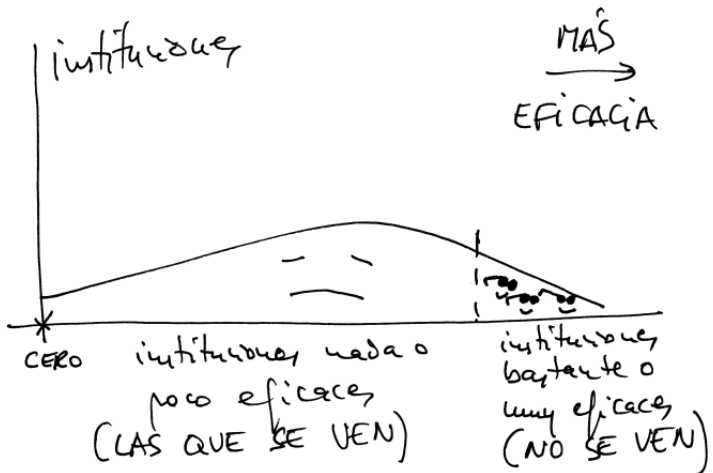 instituciones
MÁS
EFICACIA
CERO
instituciones nada o
poco eficaces
(LAS QUE SE VEN)
instituciones
bastante o
muy eficaces
(NO SE VEN)